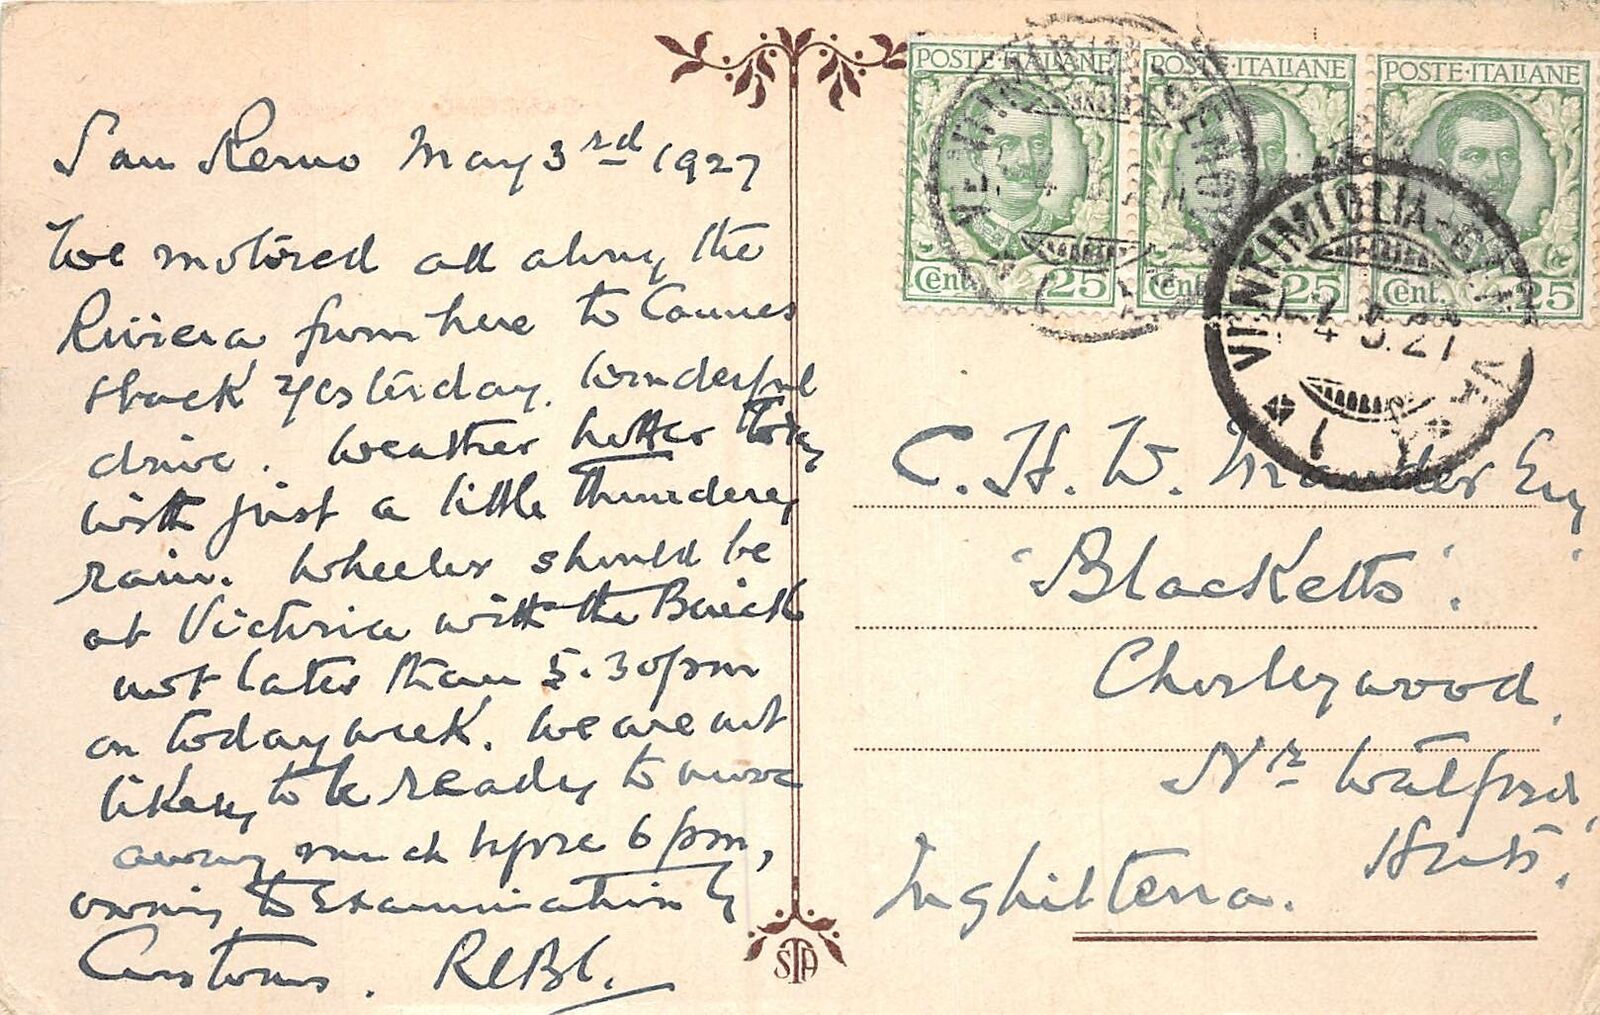 San Remo May 3rd 1927
We motored all along the
Riviera from here to Cannes
& back yesterday. Wonderful
drive. Weather hotter today
with just a little thundery
rain. Wheeler should be
at Victoria with the Buick
not later than 5.30 pm
on today week. We are not
likely to be ready to move
away much before 6 pm,
owing to examination by
Customs.
POSTE·ITALIANE POSTE·ITALIANE POSTE·ITALIANE
Cent. 25 Cent. 25 Cent. 25
VENTIMIGLIA
4 5.27
C. H. W. Mander Esq
'Blacketts'.
Chorleywood,
Nr Watford,
Herts.
Inghilterra.
STA